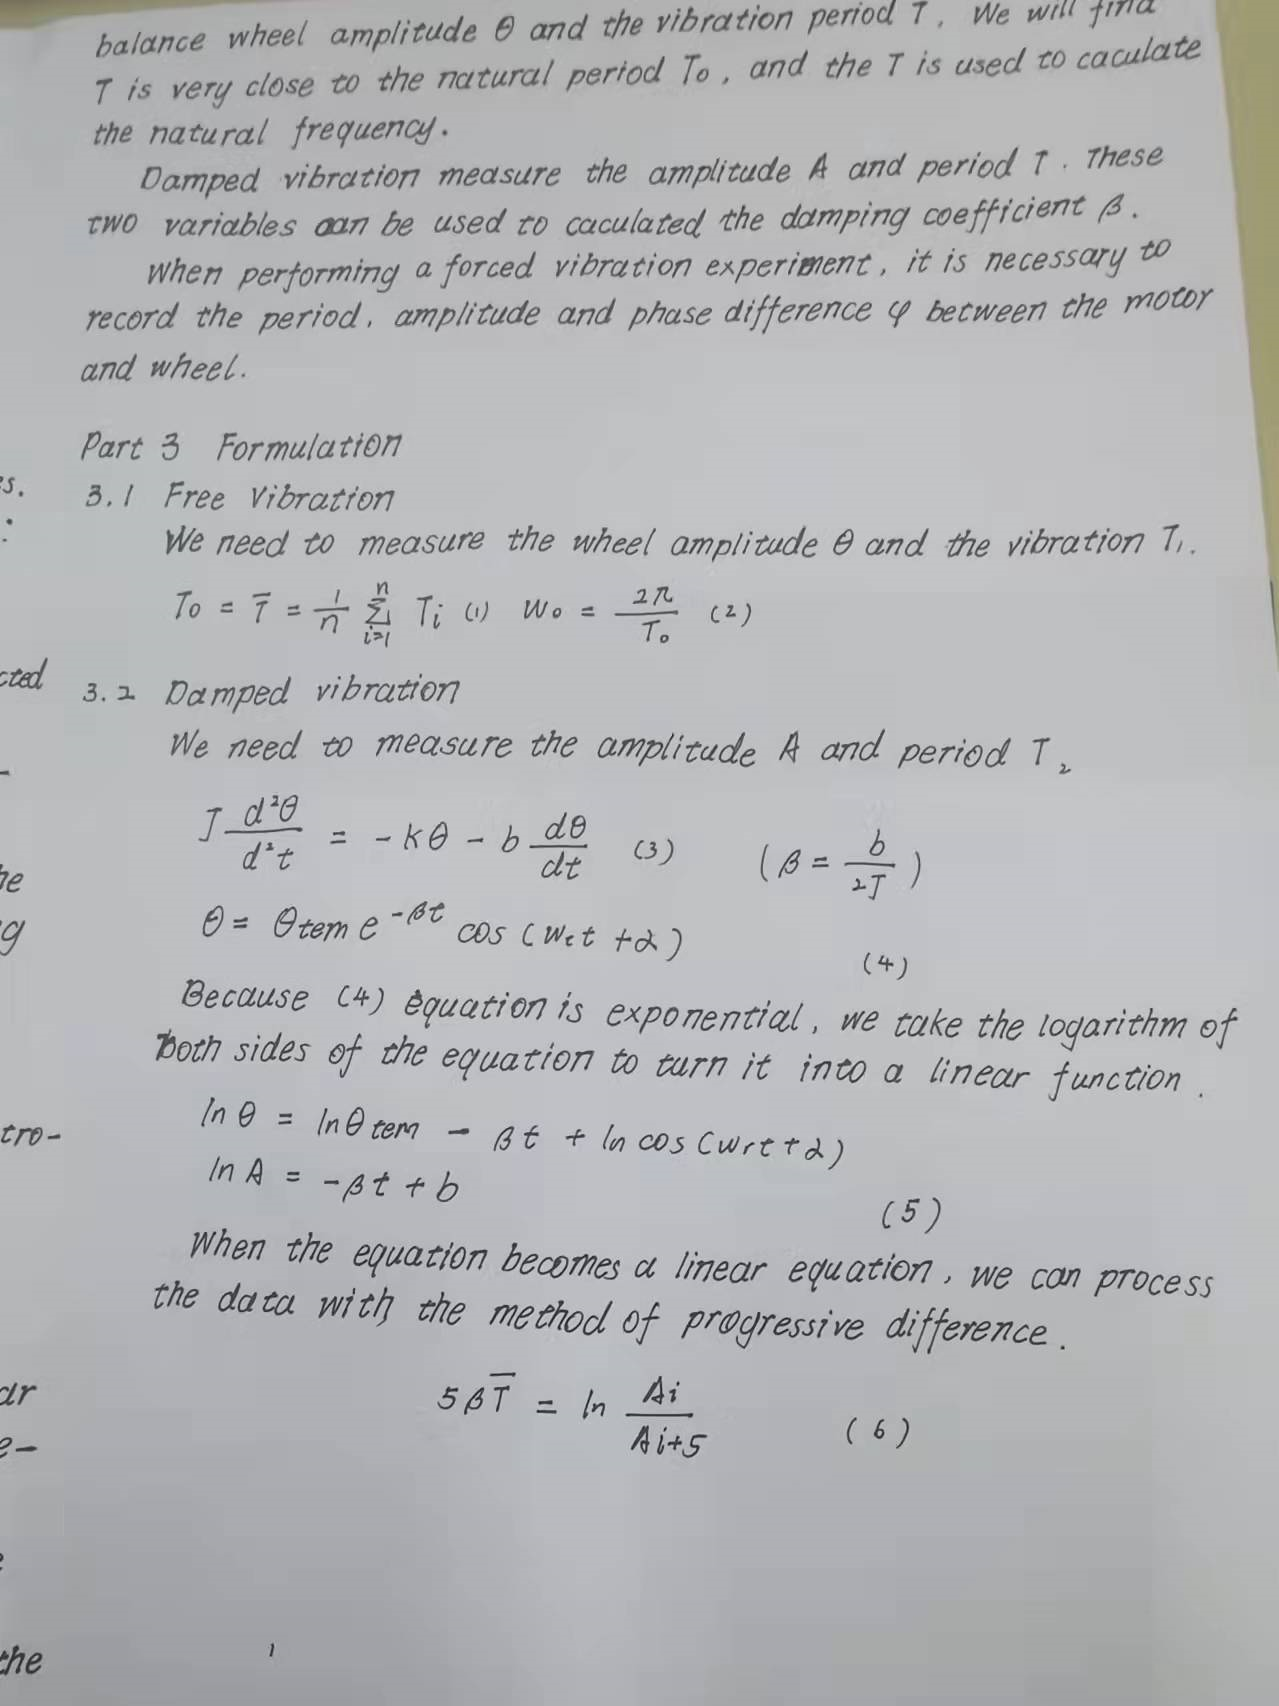 balance wheel amplitude θ and the vibration period T. We will find
T is very close to the natural period To, and the T is used to caculate
the natural frequency.
Damped vibration measure the amplitude A and period T. These
two variables can be used to caculated the damping coefficient β.
When performing a forced vibration experiment, it is necessary to
record the period, amplitude and phase difference φ between the motor
and wheel.
Part 3 Formulation
es.
3.1 Free Vibration
:
We need to measure the wheel amplitude θ and the vibration T₁.
To = T̅ = 1/n ∑ⁿᵢ₌₁ Ti (1) Wo = 2π/To (2)
cted
3.2 Damped vibration
We need to measure the amplitude A and period T₂
J d²θ/d²t = -kθ - b dθ/dt (3) (β = b/2J)
he
θ = θtem e^-βt cos(Wrt + α) (4)
g
Because (4) equation is exponential, we take the logarithm of
both sides of the equation to turn it into a linear function.
ln θ = lnθtem - βt + ln cos(Wrt + α)
tro-
ln A = -βt + b (5)
When the equation becomes a linear equation, we can process
the data with the method of progressive difference.
5βT̅ = ln Ai/Ai+5 (6)
ar
e-
the
1